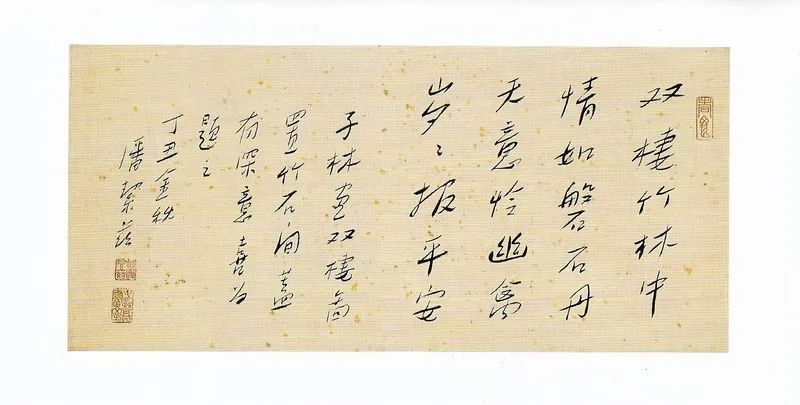 双棲竹林中
情如磐石丹
天意怜幽禽
岁〻报平安
子林画双棲图
置竹石间盖
有深意喜为
题之
丁丑金秋
潘絜兹